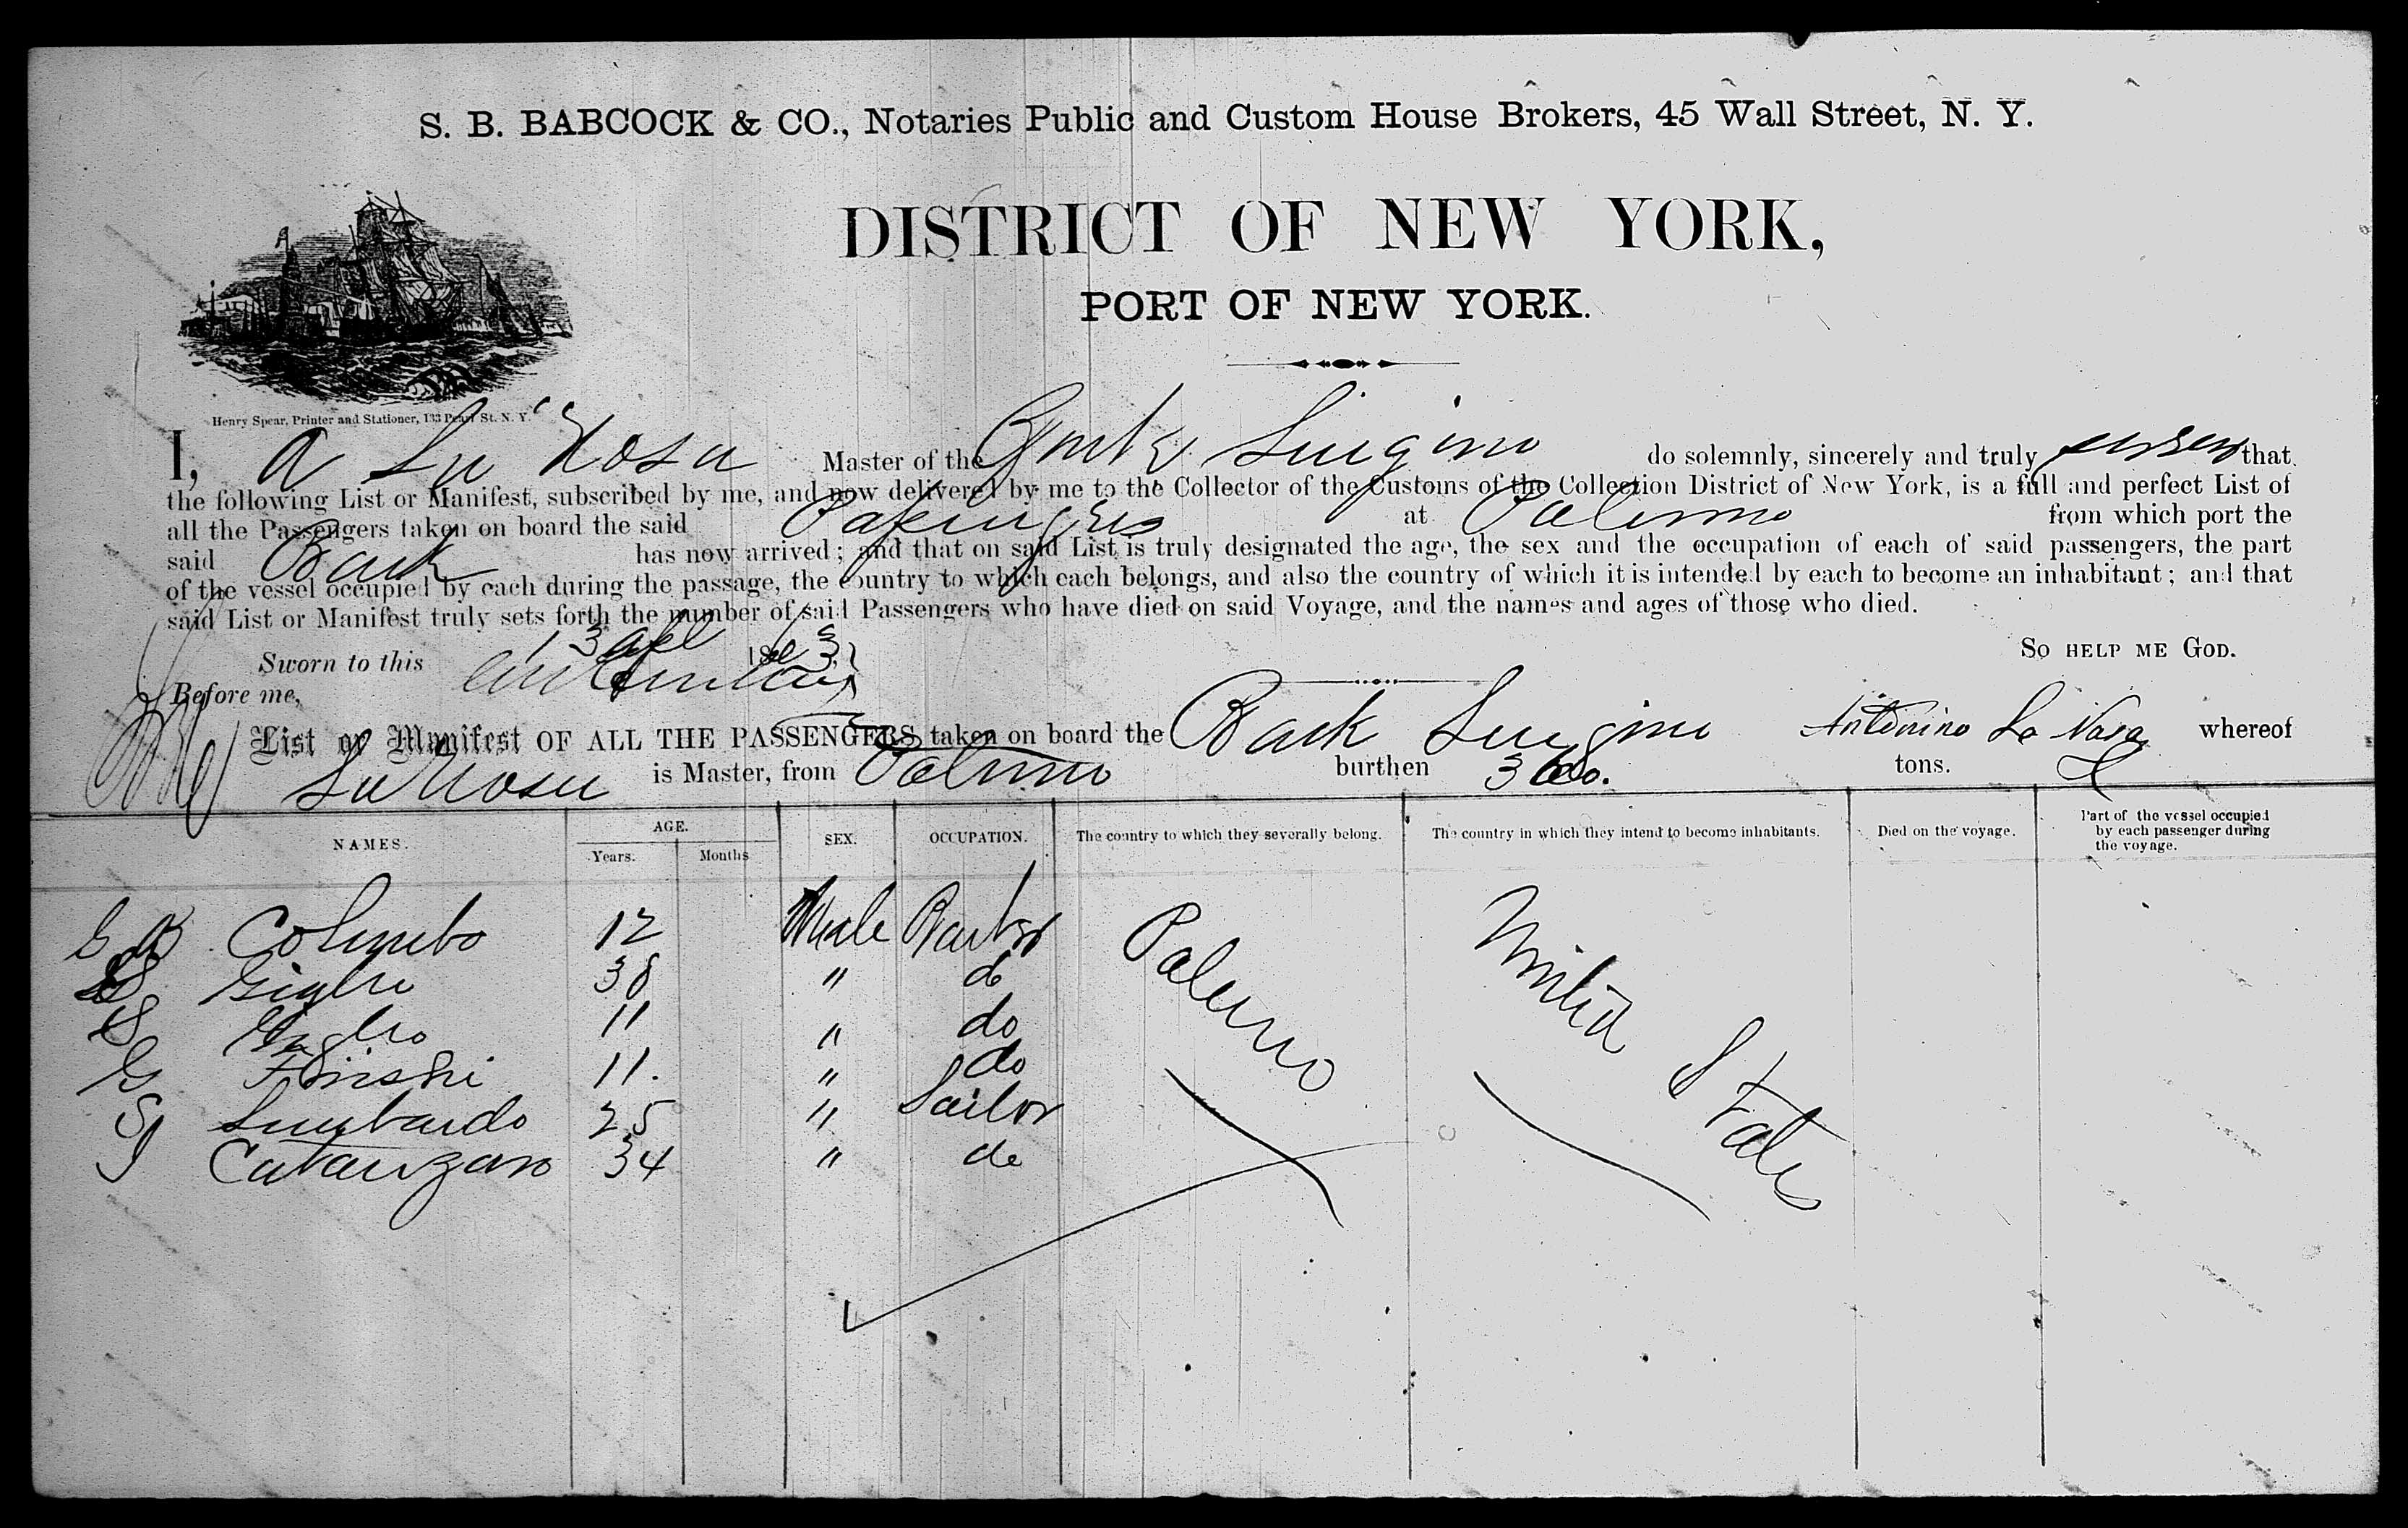 S. B. BABCOCK & CO., Notaries Public and Custom House Brokers, 45 Wall Street, N. Y.
DISTRICT OF NEW YORK,
PORT OF NEW YORK.
Henry Spear, Printer and Stationer, 133 Pearl St. N. Y.
I, A La Nosa Master of the Luigino do solemnly, sincerely and truly that
the following List or Manifest, subscribed by me, and now delivered by me to the Collector of the Customs of the Collection District of New York, is a full and perfect List of
all the Passengers taken on board the said at Palermo from which port the
said Bark has now arrived; and that on said List is truly designated the age, the sex and the occupation of each of said passengers, the part
of the vessel occupied by each during the passage, the country to which each belongs, and also the country of which it is intended by each to become an inhabitant; and that
said List or Manifest truly sets forth the number of said Passengers who have died on said Voyage, and the names and ages of those who died.
Sworn to this 13 18 3 SO HELP ME GOD.
Before me,
List or Manifest OF ALL THE PASSENGERS taken on board the Bark Luigino Antonino La Nasa whereof
La Nosa is Master, from Palermo burthen tons.
NAMES. AGE. Years. Months SEX. OCCUPATION. The country to which they severally belong. The country in which they intend to become inhabitants. Died on the voyage. Part of the vessel occupied by each passenger during the voyage.
G B Colombo 12 Male Barber Palermo United States
Giglio 38 " do
S 11 " do
G 11. " do
S Lombardo 25 " Sailor
J Catanzaro 34 " do